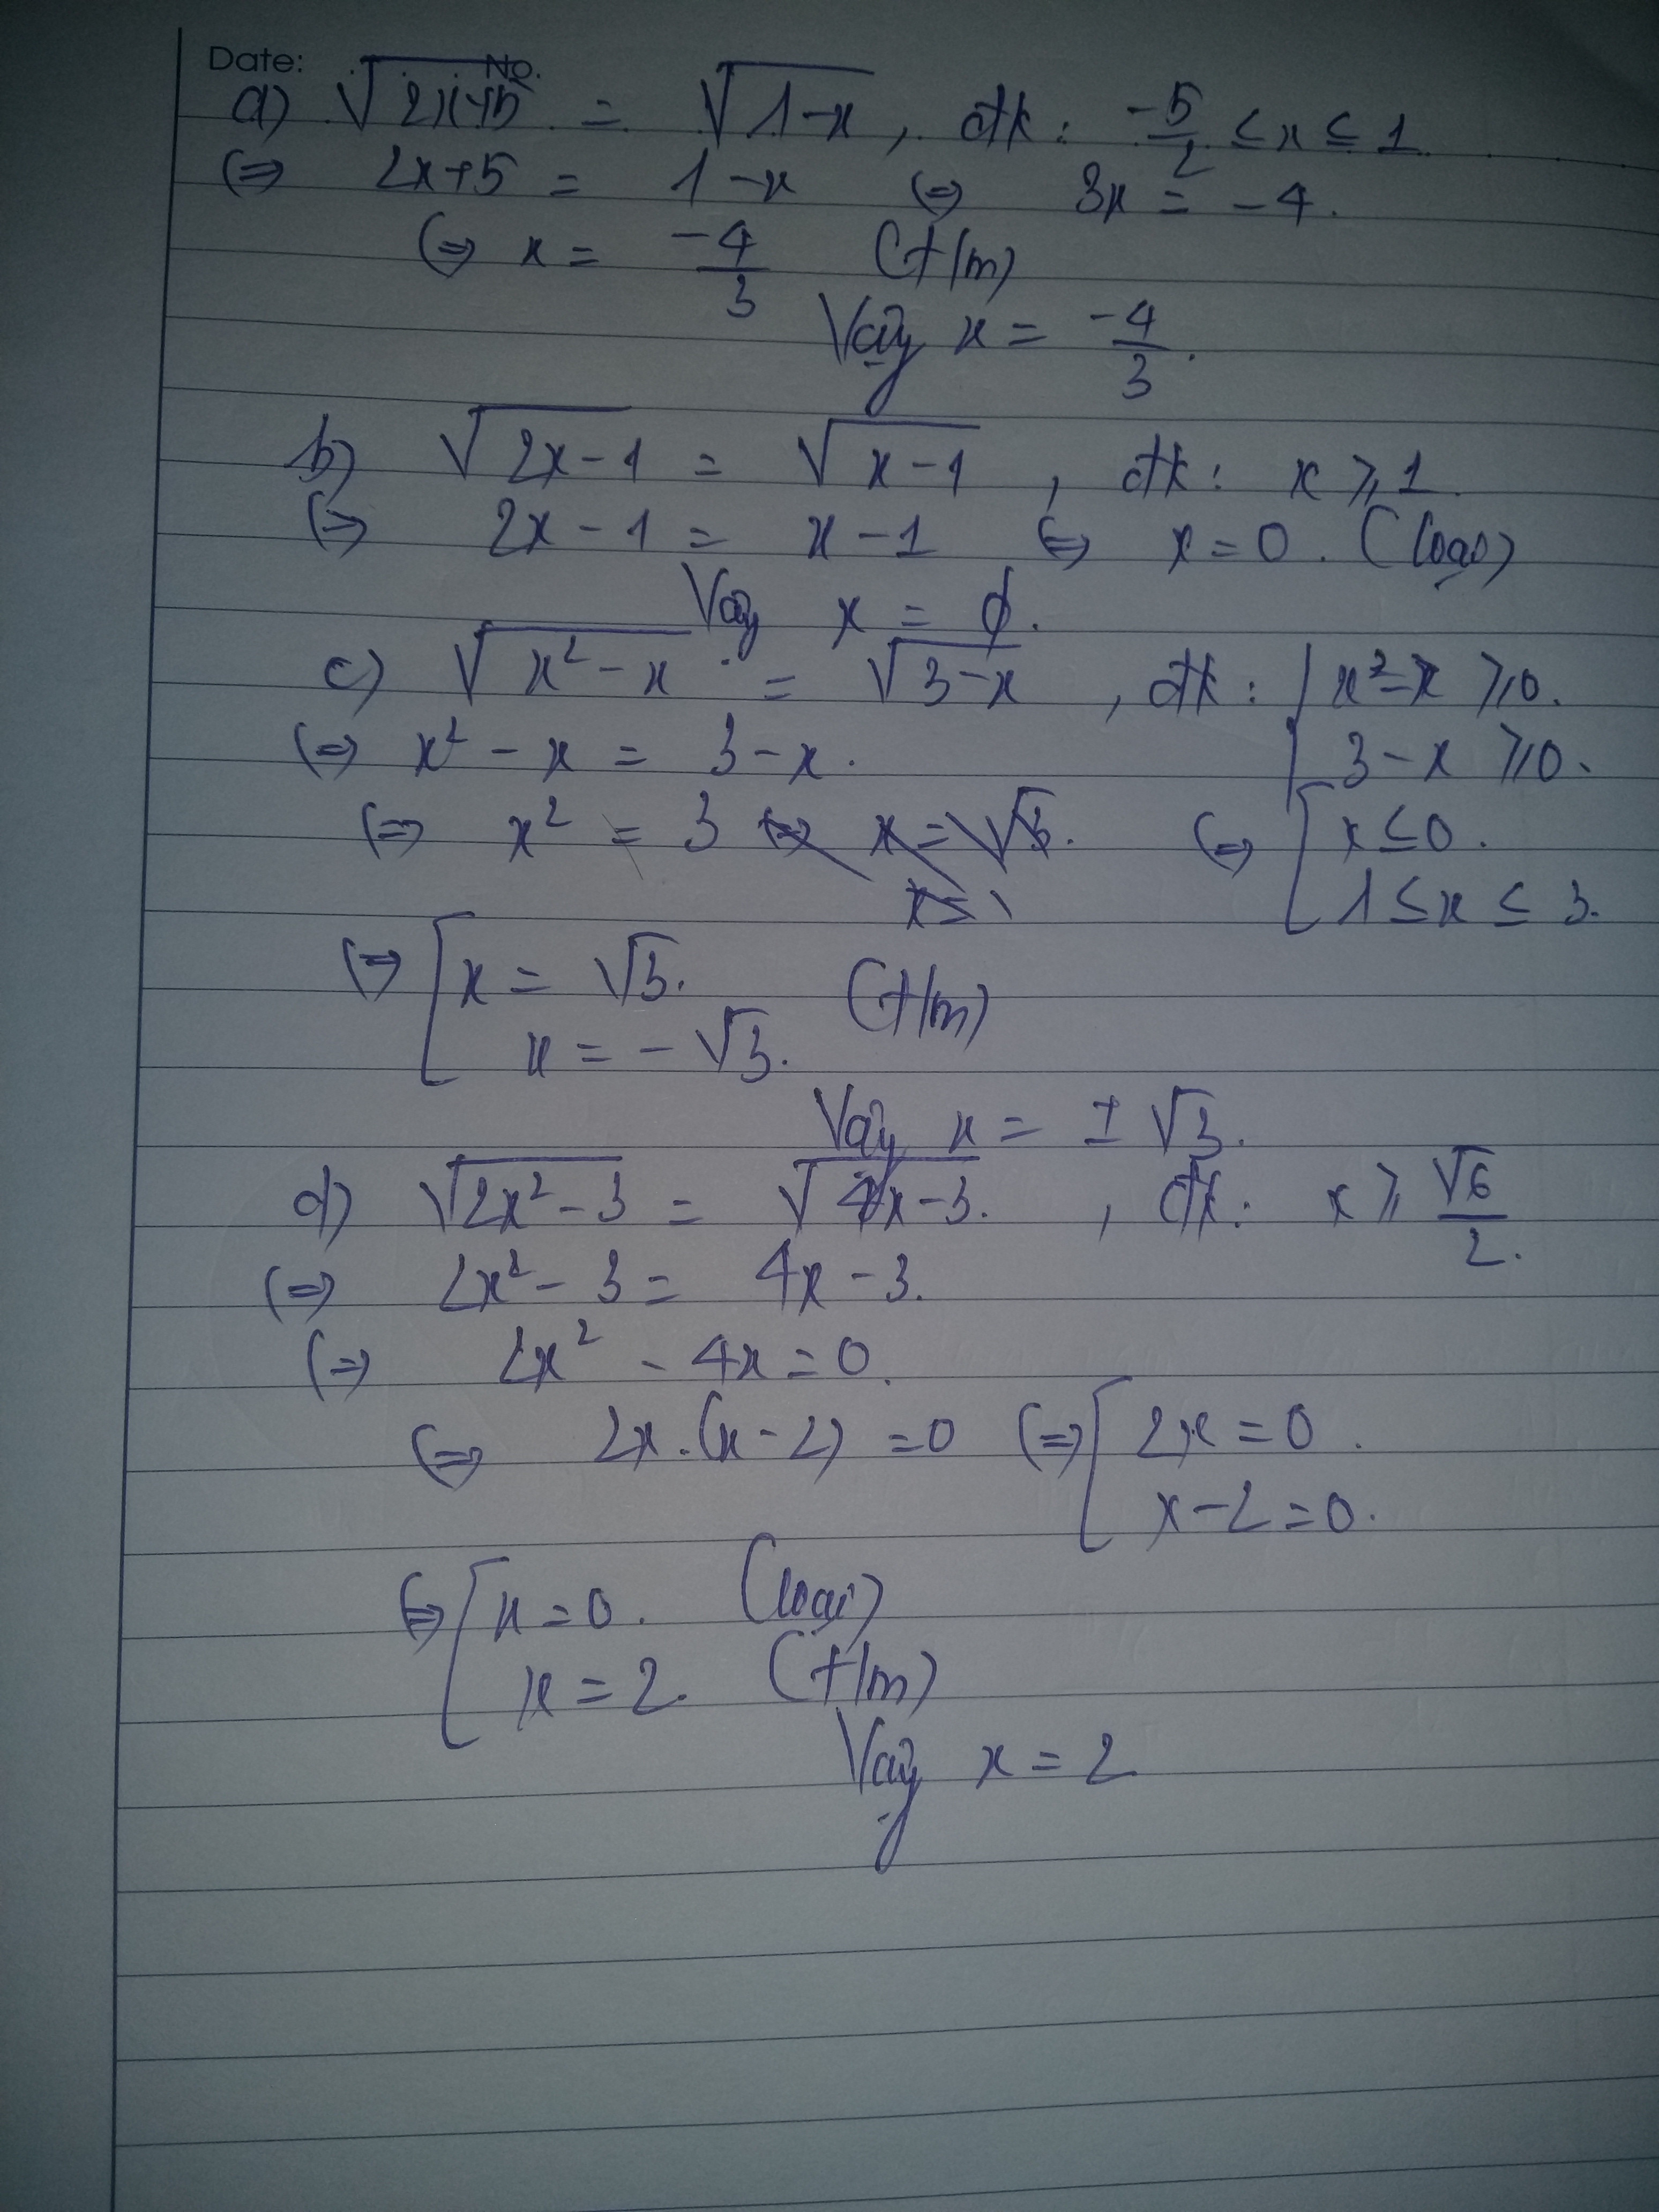 Date: No.
a) √(2x+5) = √(1-x) , đk: -5/2 ≤ x ≤ 1
(=) 2x+5 = 1-x (=) 3x = -4.
(=) x = -4/3 (t/m)
Vậy x = -4/3.
b) √(2x-1) = √(x-1) , đk: x ≥ 1.
(=) 2x-1 = x-1 (=) x = 0. (loại)
Vậy x = ∅.
c) √(x²-x) = √(3-x) , đk: { x²-x ≥ 0.
(=) x² - x = 3-x. 3-x ≥ 0.
(=) x² = 3 (=) [ x ≤ 0.
1 ≤ x ≤ 3.
(=) [ x = √3. (t/m)
x = -√3.
Vậy x = ±√3.
d) √(2x²-3) = √(4x-3). , đk: x ≥ √6/2.
(=) 2x²-3 = 4x-3.
(=) 2x² - 4x = 0.
(=) 2x.(x-2) = 0 (=) [ 2x = 0.
x-2 = 0.
(=) [ x = 0. (loại)
x = 2. (t/m)
Vậy x = 2